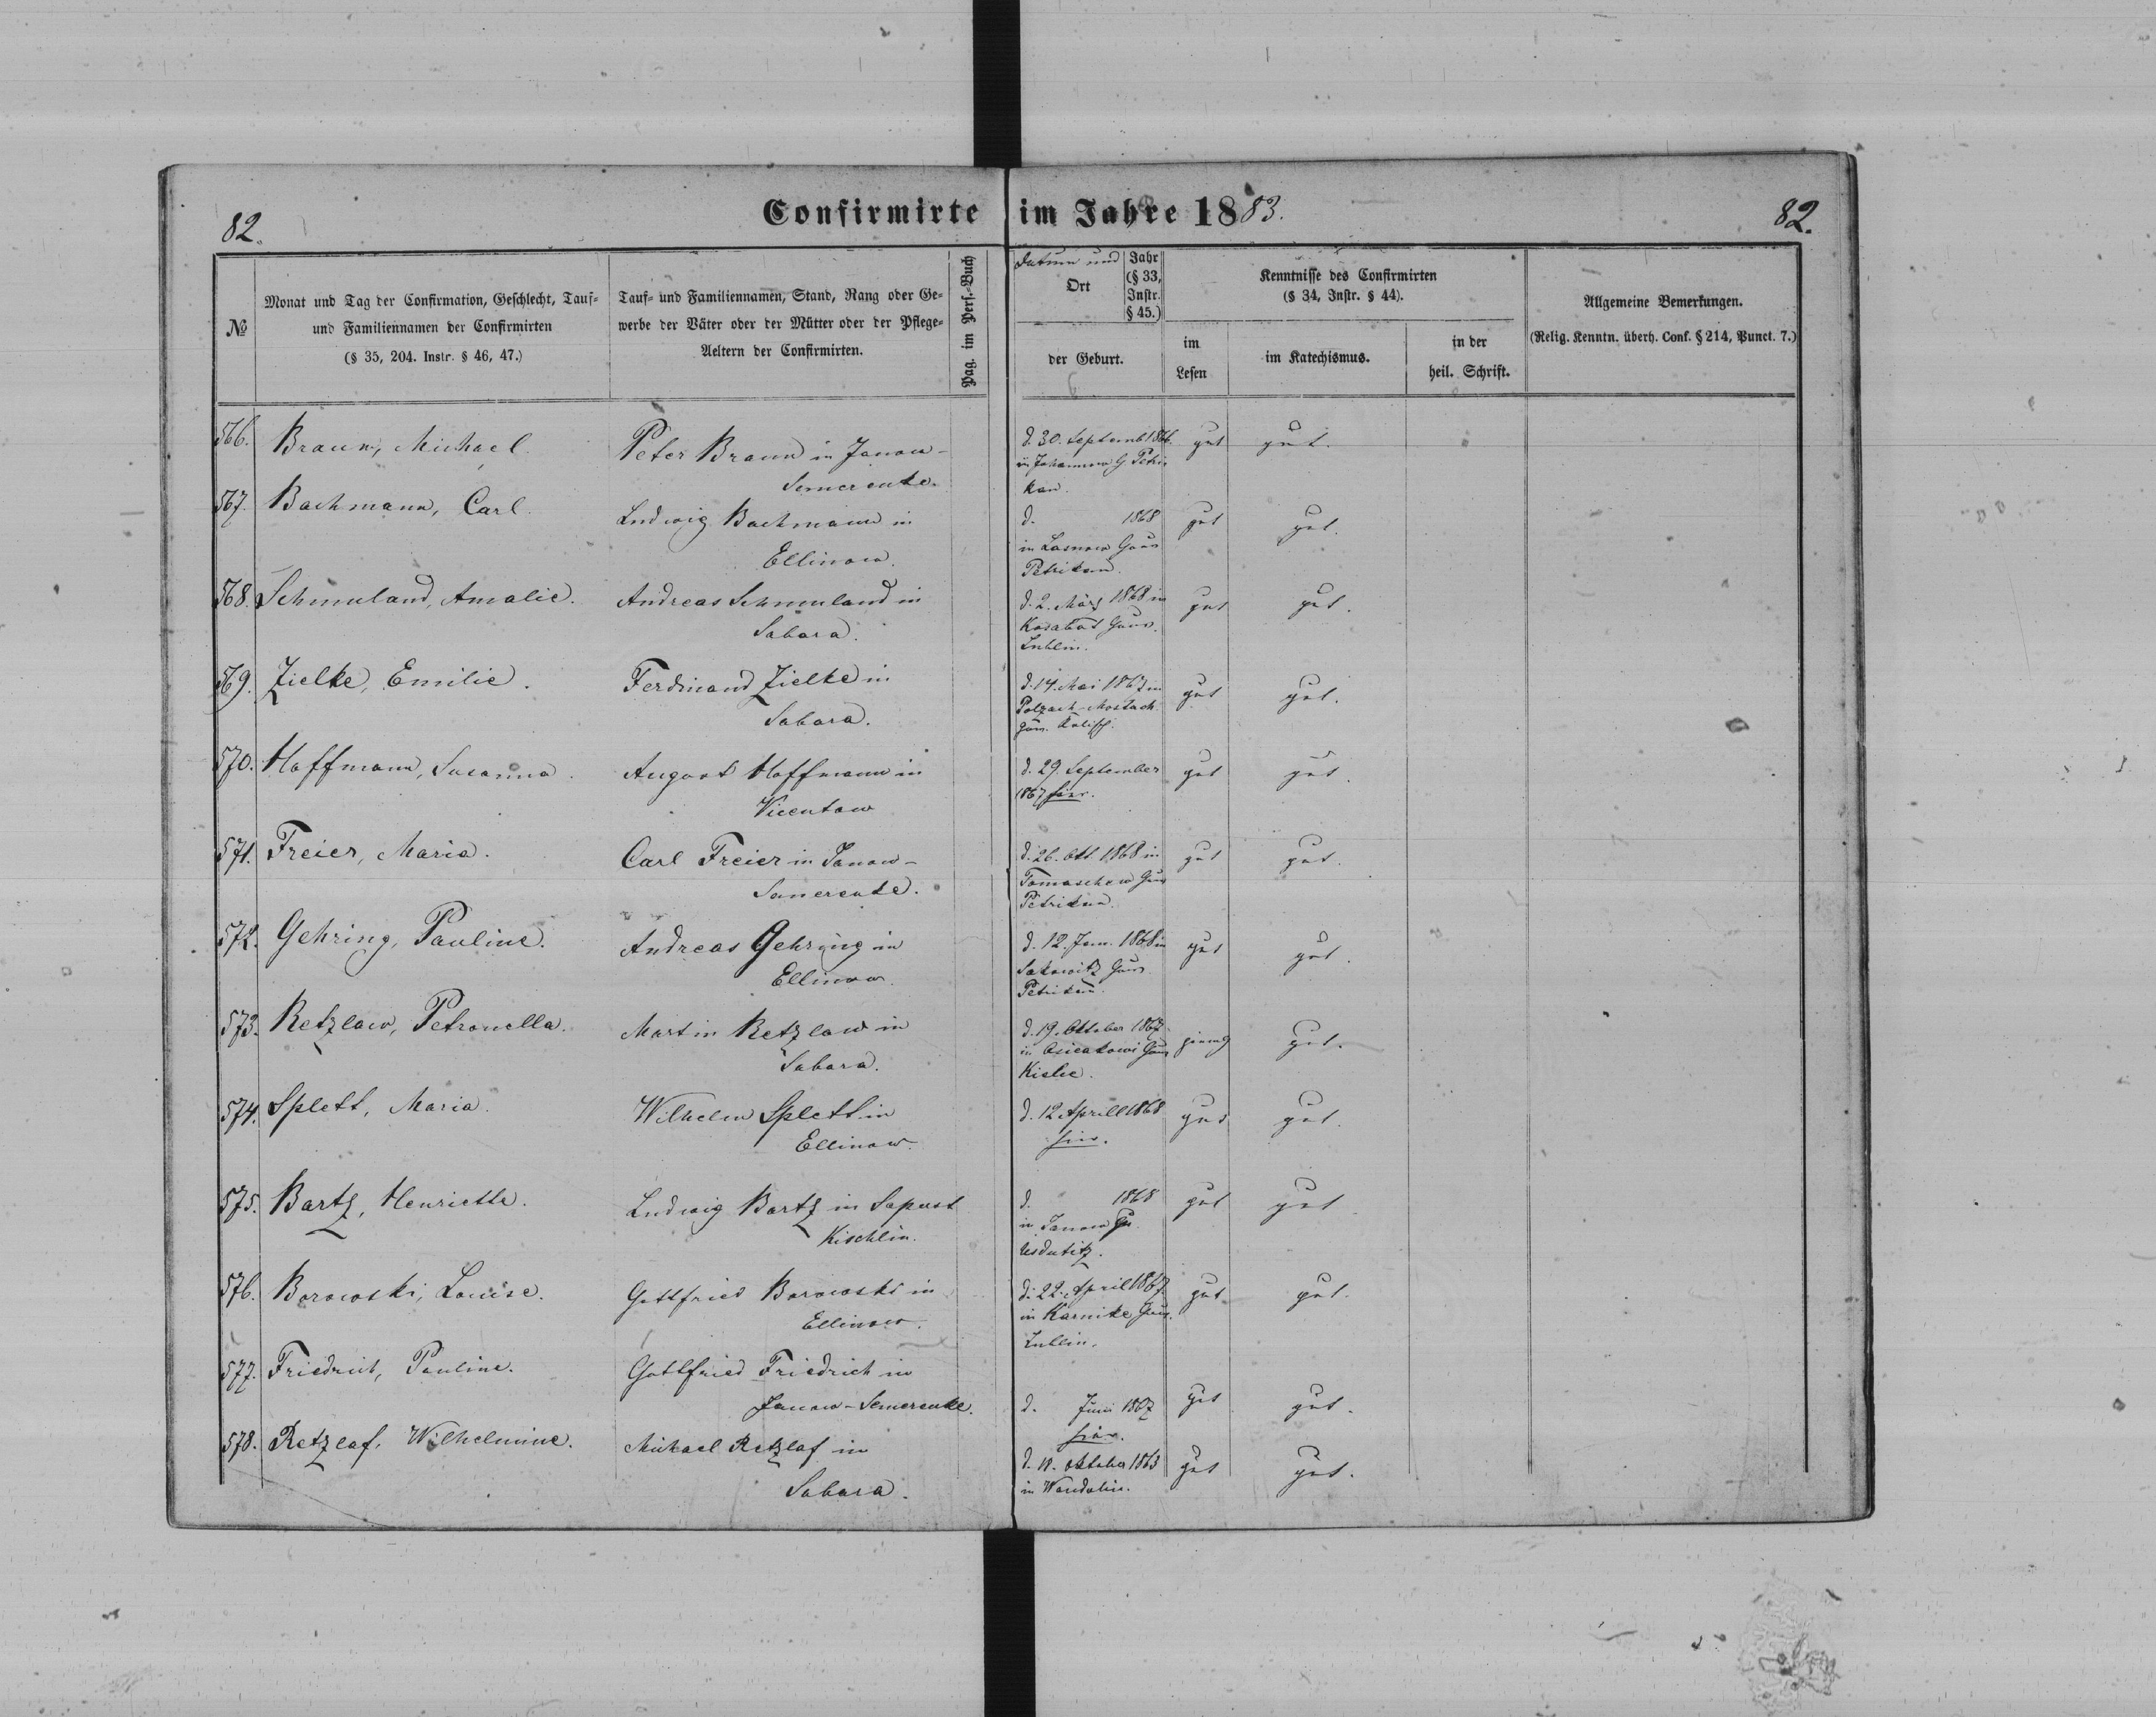 82.
Confirmirte im Jahre 1883.
82.
№
Monat und Tag der Confirmation, Geschlecht, Tauf-
und Familiennamen der Confirmirten
(§ 35, 204. Instr. § 46, 47.)
Tauf- und Familiennamen, Stand, Rang oder Ge-
werbe der Väter oder der Mütter oder der Pflege-
Aeltern der Confirmirten.
Pag. im Pers.-Buch
Datum und
Ort
Jahr
(§ 33,
Instr.
§ 45.)
der Geburt.
Kenntnisse des Confirmirten
(§ 34, Instr. § 44).
im
Lesen
im Katechismus.
in der
heil. Schrift.
Allgemeine Bemerkungen.
(Relig. Kenntn. überh. Conf. § 214, Punct. 7.)
566. Braun, Michael.
Peter Braun in Janow-
Semerenke.
d. 30. Septemb 1866.
in Johannow G. Petri-
kau.
gut gut.
567. Bachmann, Carl.
Ludwig Bachmann in
Ellinow.
d. 1868
in Gouv
Petrikau.
gut gut.
568. Schmuland, Amalie.
Andreas Schmuland in
Sabara.
d. 2. März 1868 in
Gouv.
Lublin.
gut gut.
569. Zielke, Emilie.
Ferdinand Zielke in
Sabara.
d. 14. Mai 1867 in
Gouv. Kalisch.
gut gut.
570. Hoffmann, Susanna.
August Hoffmann in
Vicentow
d. 29. September
1867 hier.
gut gut.
571. Freier, Maria.
Carl Freier in Janow-
Semerenke.
d. 26. Okt. 1868 in
Tomaschow Gouv
Petrikau.
gut gut.
572. Gehring, Pauline.
Andreas Gehring in
Ellinow.
d. 12. Jan. 1868 in
Gouv.
Petrikau.
gut gut.
573. Retzlaw, Petronella.
Martin Retzlaw in
Sabara.
d. 19. Oktober 1867
in Gouv
gut.
574. Splett, Maria.
Wilhelm Splett in
Ellinow.
d. 12 Aprill 1868
hier.
gut gut.
575. Bartz, Henriette.
Ludwig Bartz in Sapust
Kischlin.
d. 1868
in Janow
gut gut
576. Borowski, Louise.
Gottfried Borowski in
Ellinow.
d. 22. April 1867.
in Karnike Gouv.
Lublin.
gut gut.
577. Friedrich, Pauline.
Gottfried Friedrich in
Janow-Semerenke.
d. Juni 1867
hier.
gut gut.
578. Retzlaf, Wilhelmine.
Michael Retzlaf in
Sabara.
d. 18. Oktober 1863
in Wandolin.
gut gut.